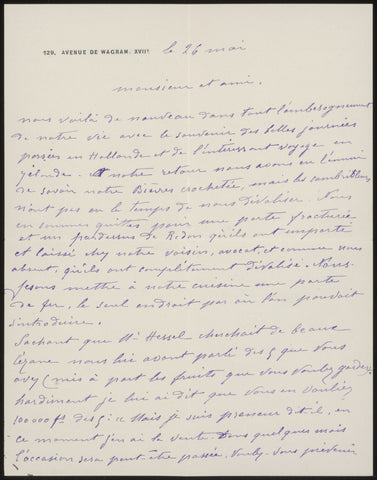 129, AVENUE DE WAGRAM. XVIIe
le 26 mai
monsieur et ami.
nous voilà de nouveau dans tout l'embesognement
de notre vie avec le souvenir des belles journées
passées en Hollande et de l'interessant voyage en
Zélande. A notre retour nous avons eu l'ennui
de savoir notre Bièvres crochetée, mais les cambrioleurs
n'ont pas eu le temps de nous dévaliser. Nous
en sommes quittes pour une porte fracturée
et un pardessus de Redon qu'ils ont emporté
et laissé chez notre voisin, avocat, et comme nous
absent, qu'ils ont complètement dévalisé. Nous
fesons mettre à notre cuisine une porte
de fer, le seul endroit par où l'on pouvait
s'introduire.
Sachant que Mr Hessel cherchait de beaux
Cézane nous lui avons parlé des 5 que vous
avez (mis à part les fruits que vous voulez garder)
hardiment je lui ai dit que vous en vouliez
100 000 fs des 5 : « Mais je suis preneur dit-il, en
ce moment j'en ai la vente. Dans quelques mois
l'occasion sera peut-être passée. Voulez-vous prévenir